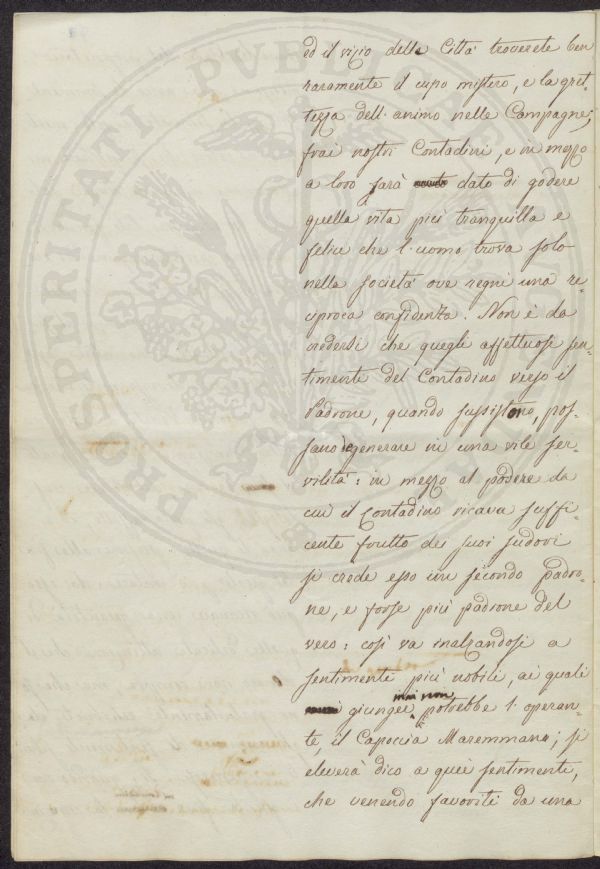 ed il vizio della Città troverete ben
raramente il cupo mistero, e la gret-
tezza dell'animo nelle Campagne;
frai nostri Contadini, e in mezzo
a loro sarà dato di godere
quella vita più tranquilla e
felice che l'uomo trova solo
nella società ove regni una re-
ciproca confidenza. Non è da
credersi che quegli affettuosi sen-
timenti del Contadino verso il
Padrone, quando sussistono, pos-
sano degenerare in una vile ser-
vilità: in mezzo al podere da
cui il Contadino ricava suffi-
cente frutto de suoi sudori
si crede esso un secondo padro-
ne, e forse più padrone del
vero: così va inalzandosi a
sentimenti più nobili, ai quali
mai non
giungere potrebbe l'operan-
te, il Capoccia Maremmano; si
eleverà dico a quei sentimenti,
che venendo favoriti da una
PROSPERITATI PVBLICAE